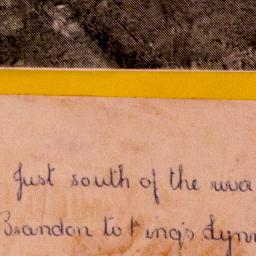 Just south of the
Brandon to King's Lynn